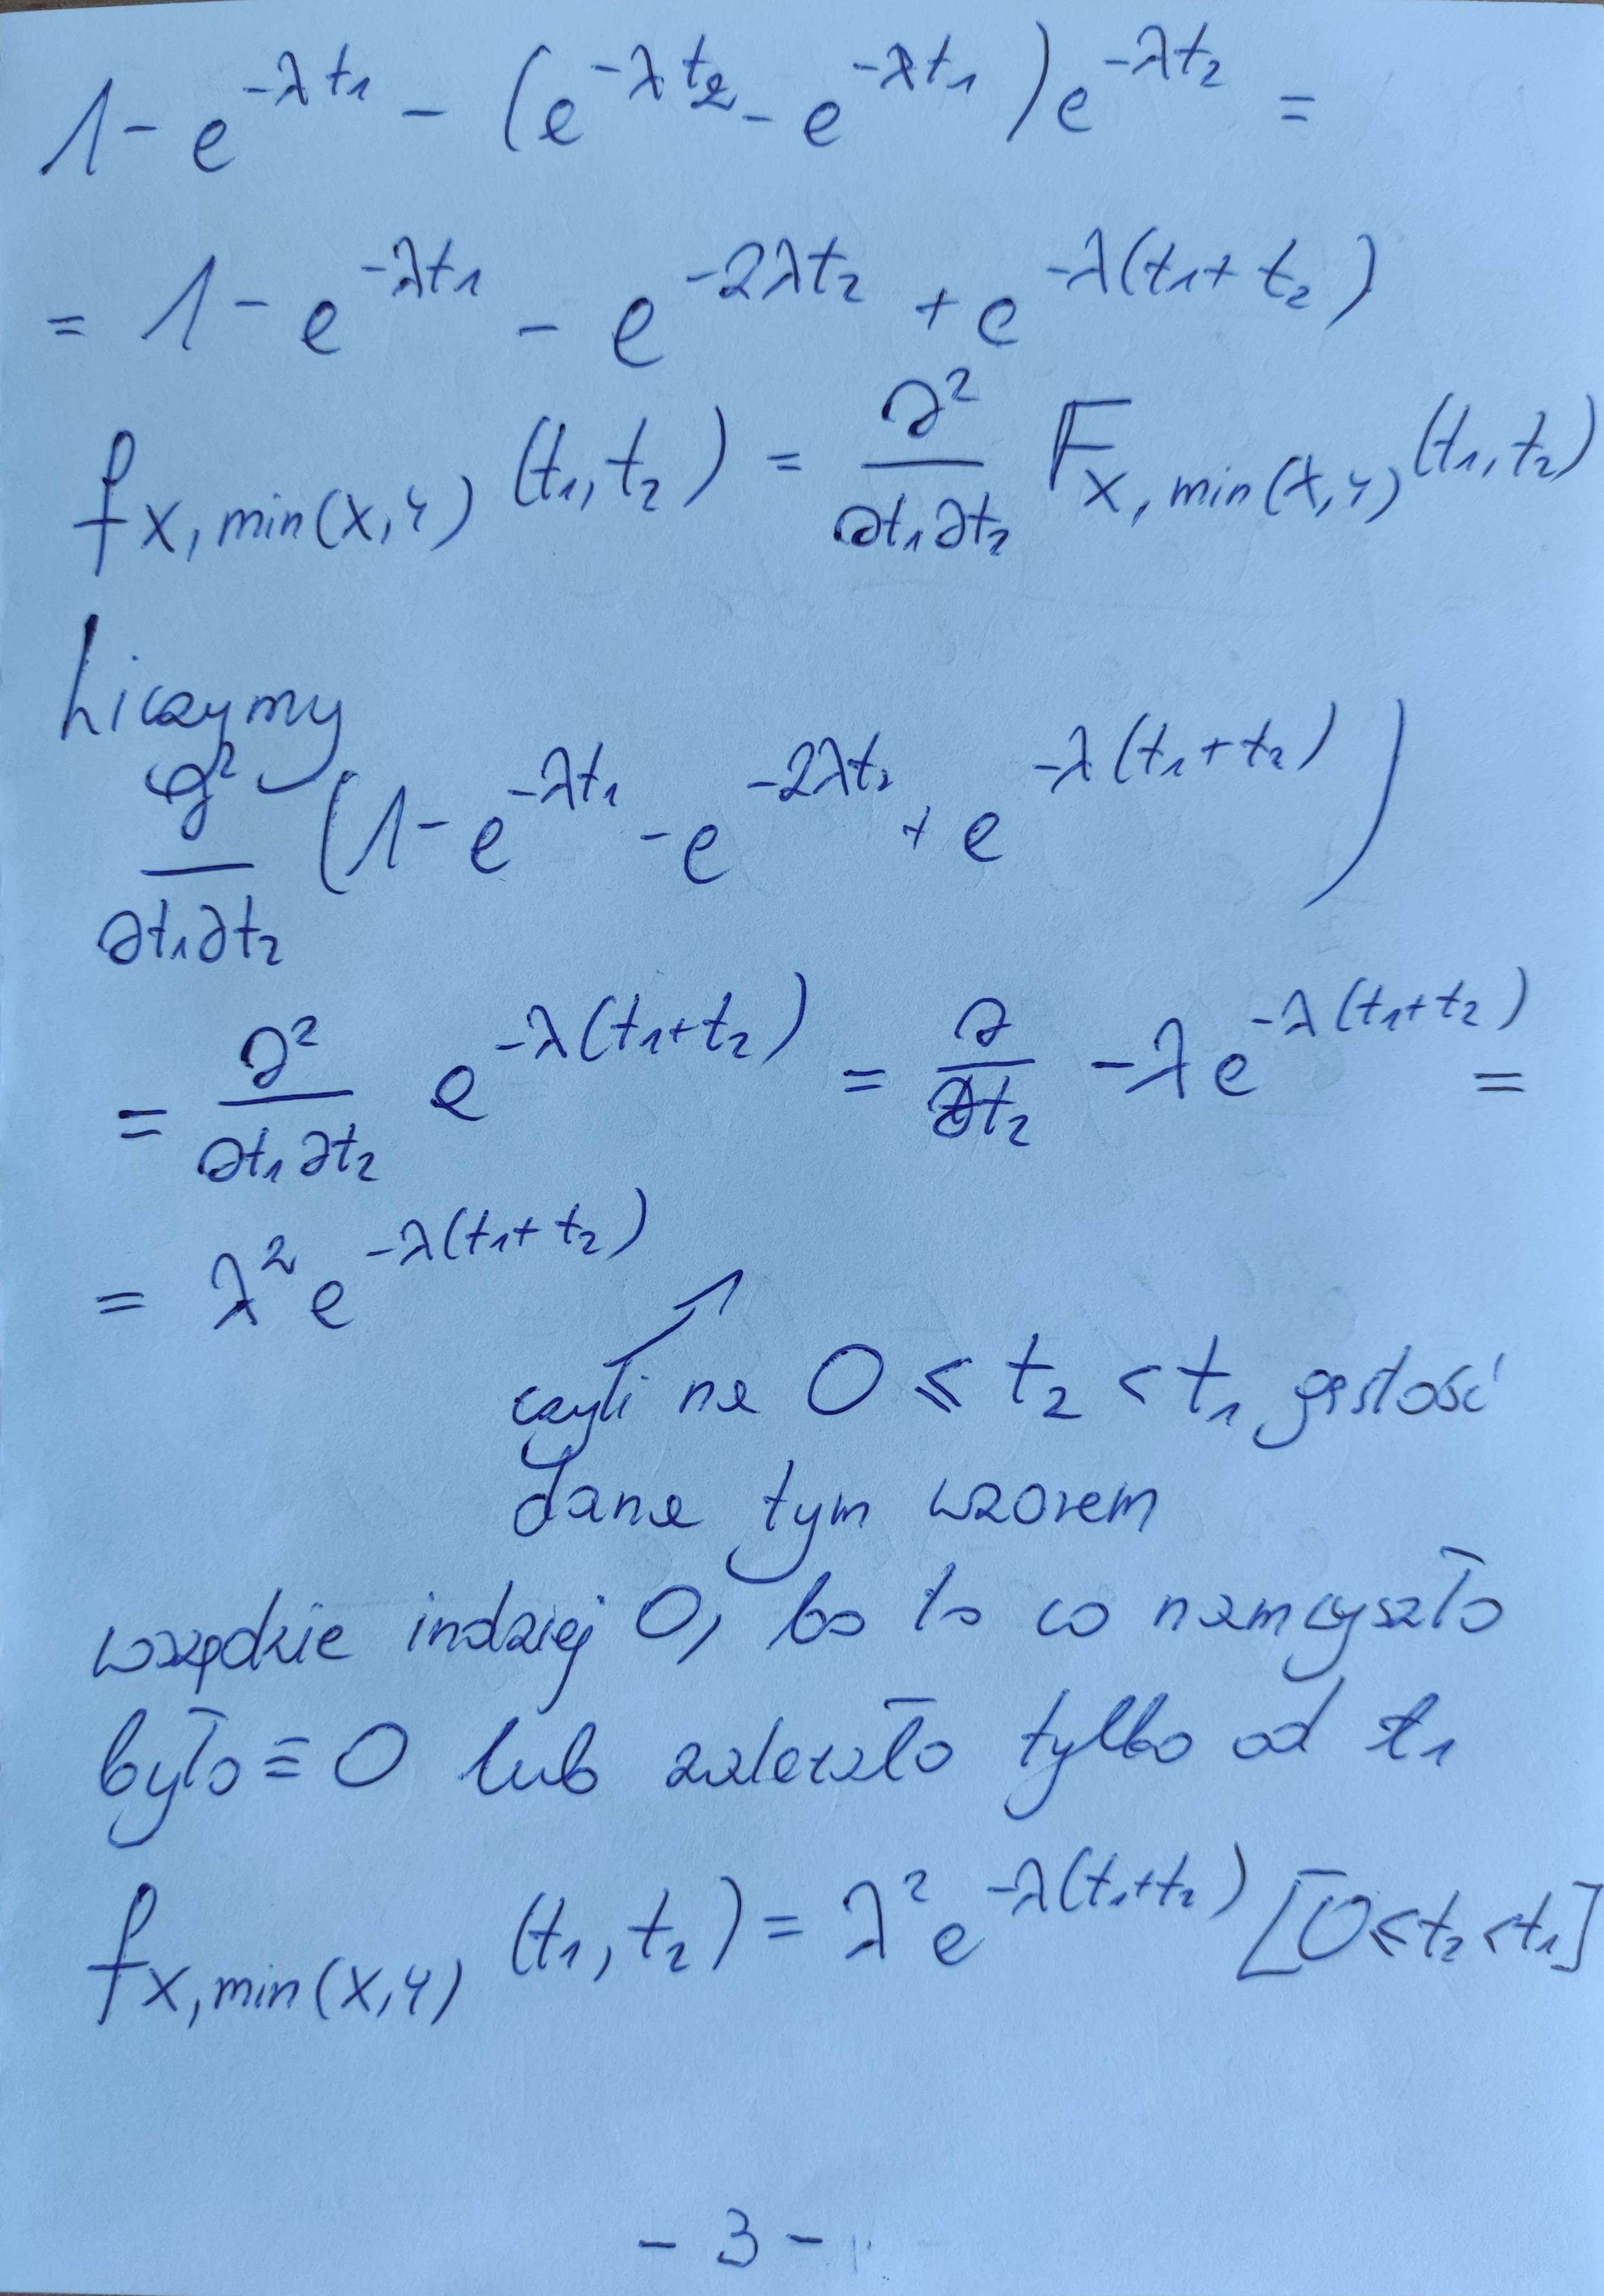 1 - e^{-λt₁} - (e^{-λt₂} - e^{-λt₁})e^{-λt₂} =
= 1 - e^{-λt₁} - e^{-2λt₂} + e^{-λ(t₁+t₂)}
f_{X, min(X,Y)} (t₁, t₂) = ∂²/∂t₁∂t₂ F_{X, min(X,Y)} (t₁, t₂)
Liczymy
∂²/∂t₁∂t₂ (1 - e^{-λt₁} - e^{-2λt₂} + e^{-λ(t₁+t₂)})
= ∂²/∂t₁∂t₂ e^{-λ(t₁+t₂)} = ∂/∂t₂ -λe^{-λ(t₁+t₂)} =
= λ²e^{-λ(t₁+t₂)}
czyli na 0 ≤ t₂ < t₁ gęstość
dana tym wzorem
wszędzie indziej 0, bo to co nam wyszło
było ≡ 0 lub zależało tylko od t₁
f_{X, min(X,Y)} (t₁, t₂) = λ²e^{-λ(t₁+t₂)} [0 ≤ t₂ < t₁]
- 3 -